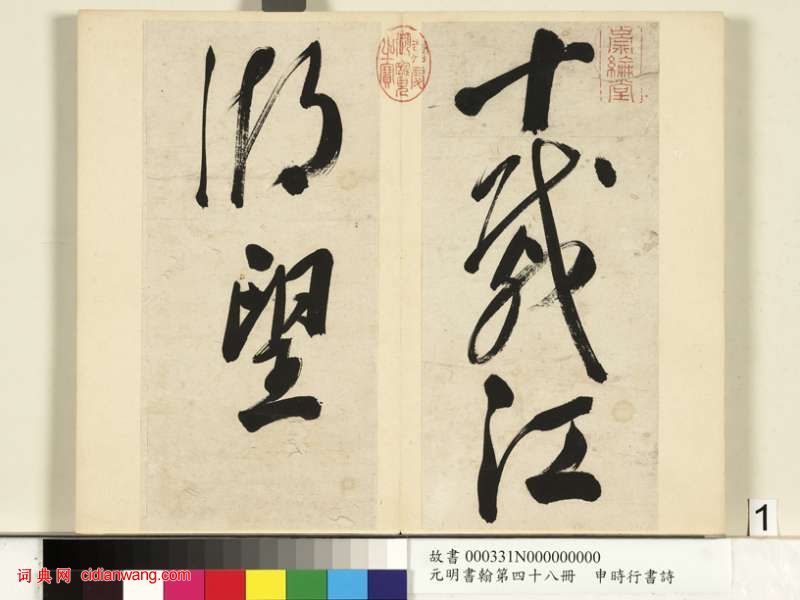 十載江
湖望
嘉慶御覽之寶
1
故書 000331N000000000
元明書翰第四十八冊 申時行書詩
词典网 cidianwang.com